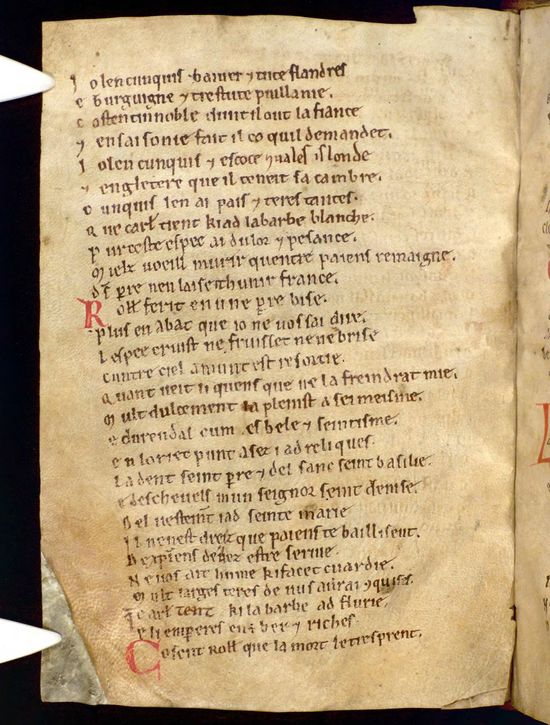 J olencunquis baiuer ⁊ tute flandres
e burguigne ⁊ trestute puillanie.
c ostentinnoble dunt il out la fiance
⁊ en saisonie fait il co quil demandet.
J olen cunquis ⁊ escoce ⁊uales islonde
⁊ engletere que il teneit sa cambre.
c unquis len ai pais ⁊ teres tantes.
Q ue carł tient ki ad la barbe blanche.
P ur ceste espee ai dulor ⁊ pesance.
M ielz uoeill murir quentre paiens remaigne.
d̄s pere nen laiseit hunir france.
Roll̄ ferit en une perre bise.
Plus en abat que io ne uos sai dire.
L espee cruist ne fruisset ne ne brise
cuntre ciel amunt est resortie.
Quant ueit li quens que ne la freindrat mie.
M ult dulcement la pleinst a sei meisme.
e durendal cum es bele ⁊ seintisme.
e n loriet punt asez i ad reliques.
La dent seint perre ⁊ del sanc seint basilie.
e des cheuels mun seignor seint denise.
D el uestemt̄ i ad seinte marie
Il nen est dreiz que paiens te baillisent.
De xp̄iens deuez estre seruie.
Ne uos ait hume ki facet cuardie.
Mult larges teres de uus aurai ⁊quises
Q carł tent ki la barbe ad flurie.
e li emperes en ē ber ⁊ riches.
Co sent Roll̄ que la mort le tresprent.